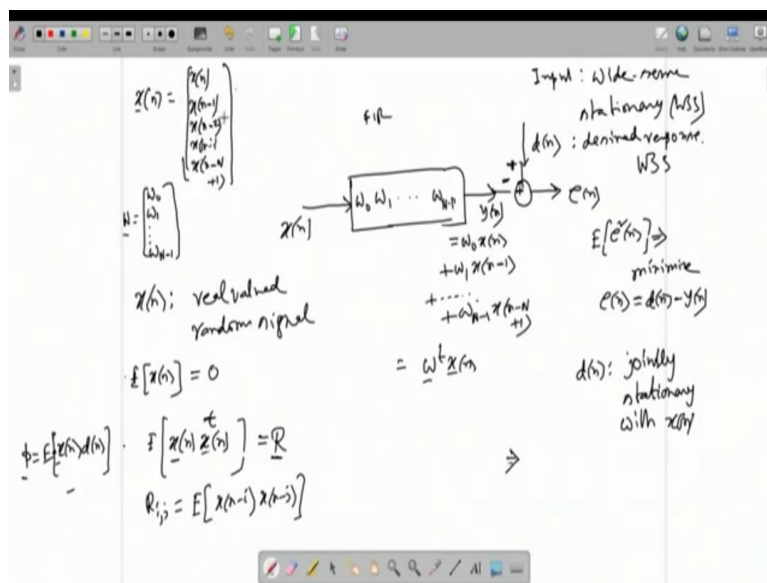 x(n) = [x(n)
x(n-1)
x(n-2)
x(n-i
x(n-N
+1)]
W = [w0
w1
⋮
wN-1]
x(n): real valued
random signal
E[x(n)] = 0
p = E[x(n)d(n)]. E[x(n) x^t(n)] = R
Ri,j = E[x(n-i) x(n-j)]
FIR
x(n)
w0 w1 ... wN-1
y(n)
= w0x(n)
+w1 x(n-1)
+.....
+wN-1 x(n-N
+1)
= w^t x(n)
⇒
Input: wide-sense
stationary (WSS)
d(n): desired response.
WSS
+
-
+
e(n)
E[e²(n)] ⇒
minimise
e(n) = d(n) - y(n)
d(n): jointly
stationary
with x(n)